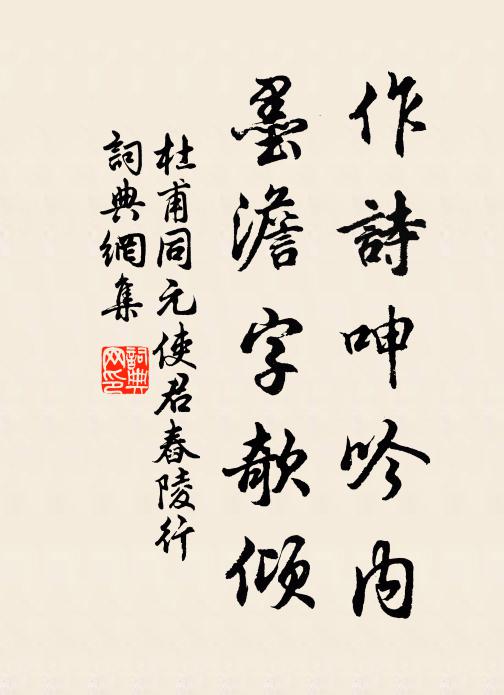 作詩呻吟内
墨澹字欹傾
杜甫同元使君舂陵行
詞典網集
詞典网印